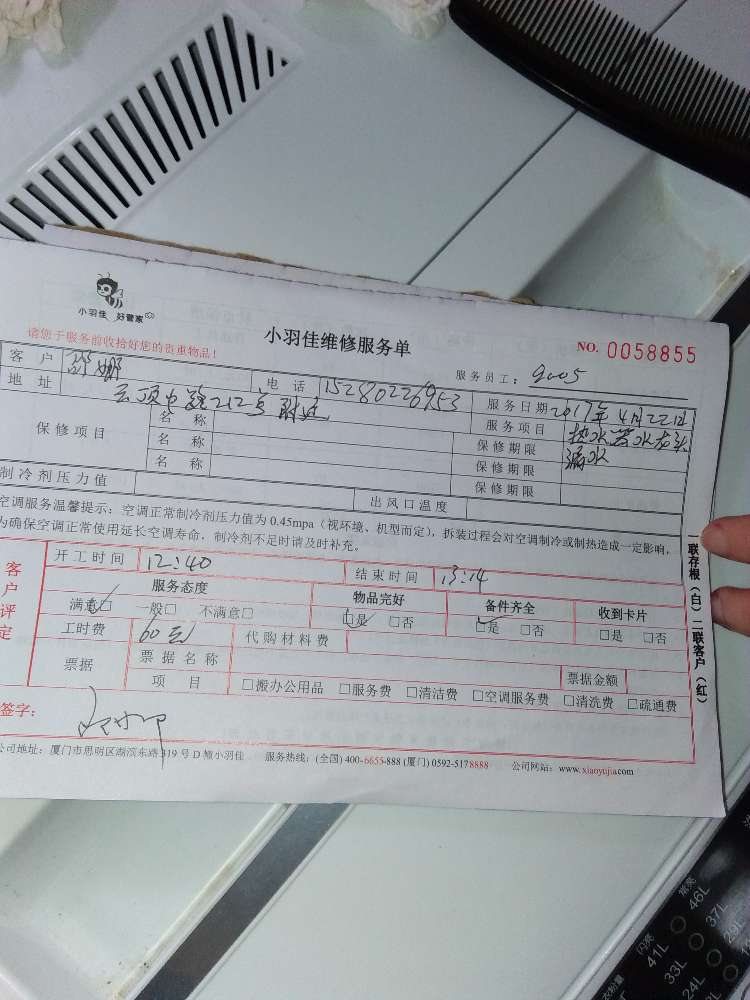 小羽佳 好管家
请您于服务前收拾好您的贵重物品!
小羽佳维修服务单
NO. 0058855
服务员工: 9005
客户 电话 15280226953 服务日期 2017年4月22日
地址 云顶中路212号附近 服务项目 热水器水龙头漏水
保修项目
名称 保修期限
名称 保修期限
名称 保修期限
制冷剂压力值 出风口温度
空调服务温馨提示: 空调正常制冷剂压力值为 0.45mpa(视环境、机型而定), 拆装过程会对空调制冷或制热造成一定影响,
为确保空调正常使用延长空调寿命, 制冷剂不足时请及时补充。
客户评定
开工时间 12:40 结束时间 13:14
服务态度 物品完好 备件齐全 收到卡片
满意□ 一般□ 不满意□ □是 □否 □是 □否 □是 □否
工时费 60元 代购材料费
票据 票据名称 票据金额
项目 □搬办公用品 □服务费 □清洁费 □空调服务费 □清洗费 □疏通费
签字:
公司地址: 厦门市思明区湖滨东路319号D幢小羽佳 服务热线: (全国) 400-6655-888 (厦门) 0592-5178888 公司网站: www.xiaoyujia.com
一联存根(白) 二联客户(红)
常亮
46L
37L
29L
闪亮
41L
33L
24L
衣粉量